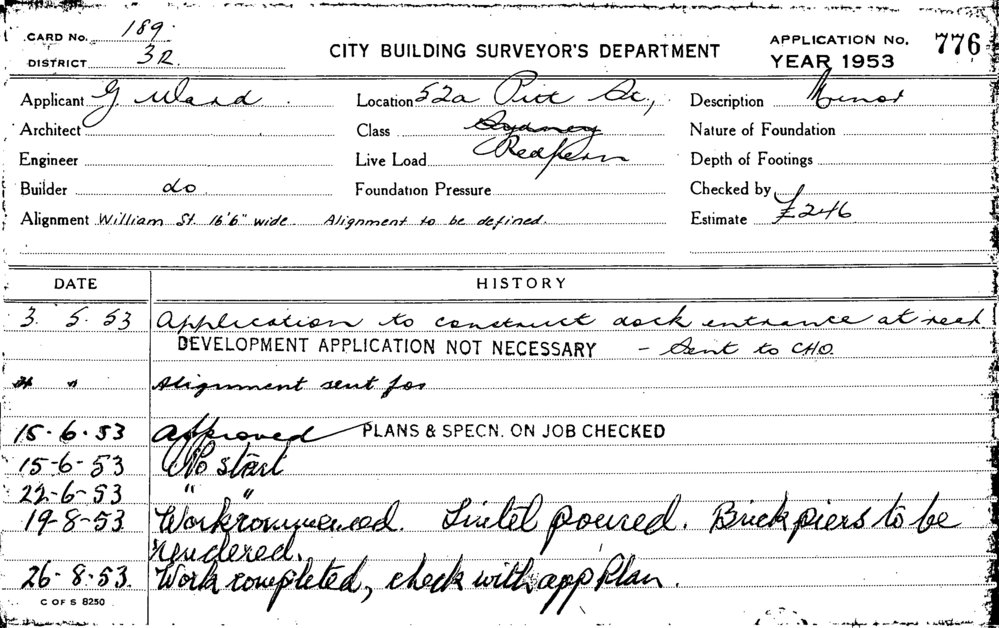 CARD No. 189
DISTRICT 32
CITY BUILDING SURVEYOR'S DEPARTMENT
APPLICATION No. 776
YEAR 1953
Applicant G Ward
Location 52a Pitt St.,
Description Minor
Architect
Class Sydney
Nature of Foundation
Engineer
Live Load Redfern
Depth of Footings
Builder do
Foundation Pressure
Checked by
Alignment William St. 16'6" wide. Alignment to be defined.
Estimate £246
DATE HISTORY
3. 5. 53 Application to construct dock entrance at rear
DEVELOPMENT APPLICATION NOT NECESSARY - Sent to CHO.
" " Alignment sent for
15.6.53 Approved PLANS & SPECN. ON JOB CHECKED
15-6-53 No start
22-6-53 " "
19-8-53 Work commenced. Lintel poured. Brick piers to be
rendered.
26-8-53. Work completed, check with app Plan.
C OF S 8250